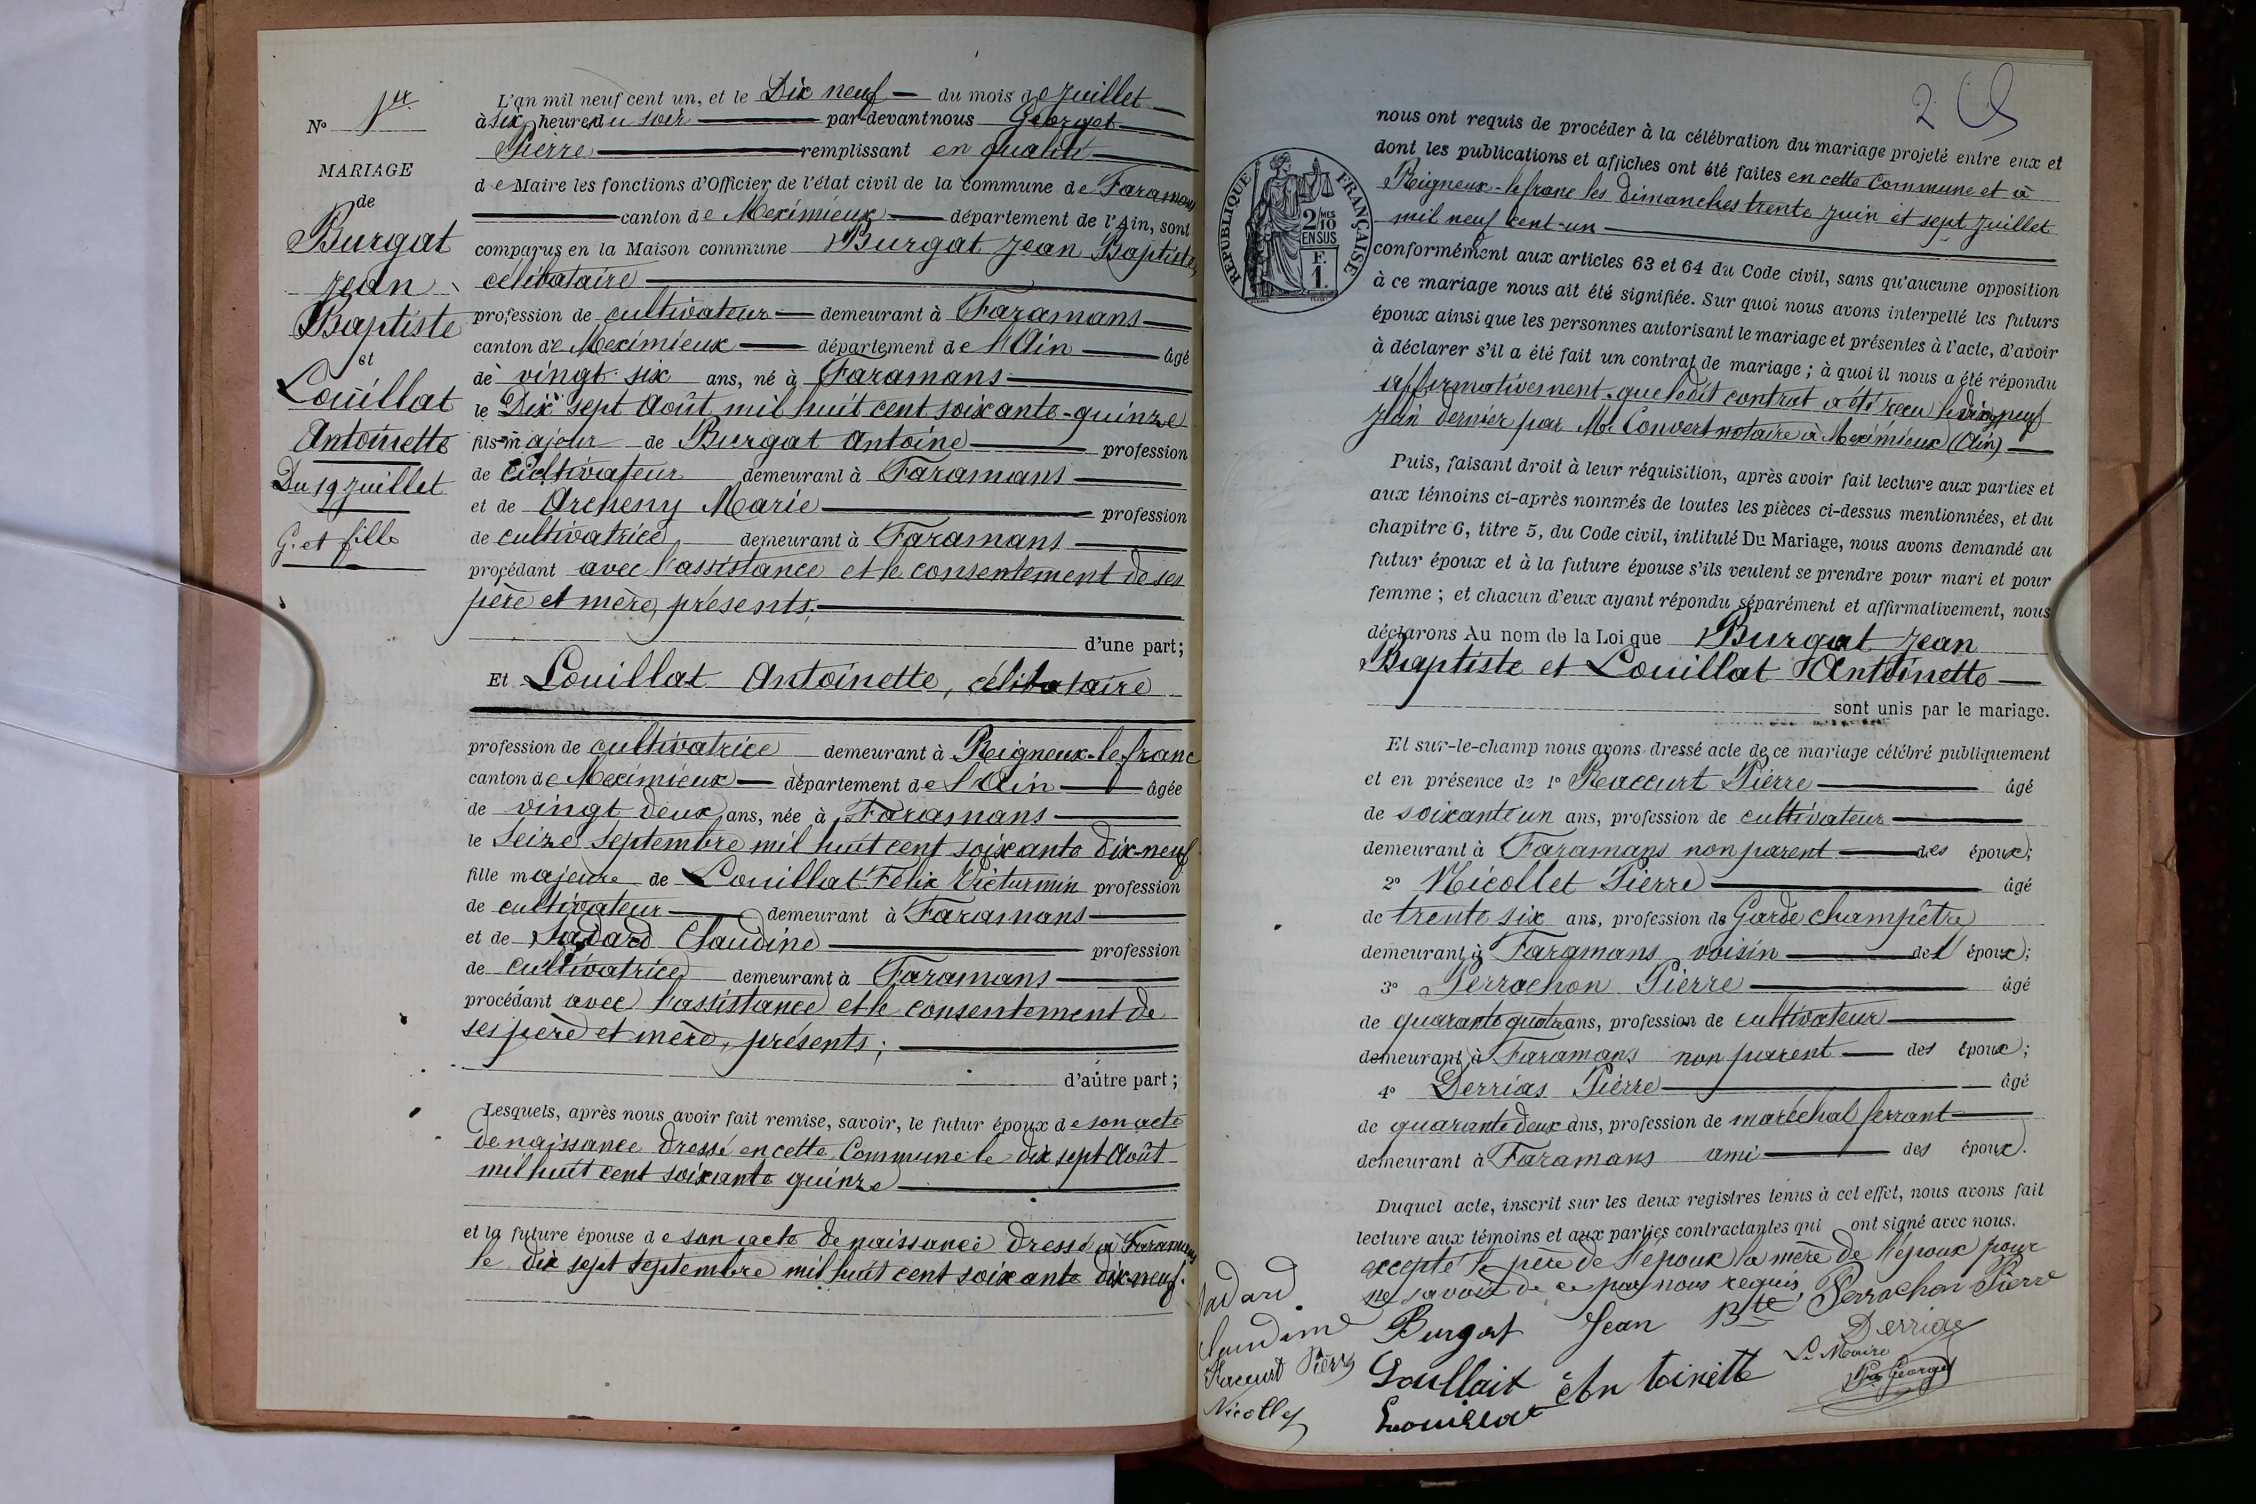 No 1er
MARIAGE
de
Burgat
Jean
Baptiste
et
Louillat
Antoinette
Du 19 Juillet
G. et fille
L'an mil neuf cent un, et le Dix neuf du mois de Juillet
à six heures du soir par devant nous Georget
Pierre remplissant en qualité
de Maire les fonctions d'Officier de l'état civil de la commune de Faramans
canton de Meximieux département de l'Ain, sont
comparus en la Maison commune Burgat Jean Baptiste,
célibataire
profession de cultivateur demeurant à Faramans
canton de Meximieux département de l'Ain âgé
de vingt-six ans, né à Faramans
le Dix sept Août mil huit cent soixante-quinze
fils majeur de Burgat Antoine profession
de cultivateur demeurant à Faramans
et de Archeny Marie profession
de cultivatrice demeurant à Faramans
procédant avec l'assistance et le consentement de ses
père et mère, présents;
d'une part;
Et Louillat Antoinette, célibataire
profession de cultivatrice demeurant à Reigneux-le-franc
canton de Meximieux département de l'Ain âgée
de vingt deux ans, née à Faramans
le seize septembre mil huit cent soixante dix-neuf
fille majeure de Louillat Félix Victurmin profession
de cultivateur demeurant à Faramans
et de Jadard Claudine profession
de cultivatrice demeurant à Faramans
procédant avec l'assistance et le consentement de
ses père et mère, présents;
d'autre part;
Lesquels, après nous avoir fait remise, savoir, le futur époux de son acte
de naissance dressé en cette Commune le dix sept Août
mil huit cent soixante quinze
et la future épouse de son acte de naissance dressé à Faramans
le dix sept septembre mil huit cent soixante dix-neuf.
2
RÉPUBLIQUE FRANÇAISE
2/10 MES
EN SUS
F.
1.
nous ont requis de procéder à la célébration du mariage projeté entre eux et
dont les publications et affiches ont été faites en cette Commune et à
Reigneux-le franc les dimanches trente juin et sept juillet
mil neuf cent-un
conformément aux articles 63 et 64 du Code civil, sans qu'aucune opposition
à ce mariage nous ait été signifiée. Sur quoi nous avons interpellé les futurs
époux ainsi que les personnes autorisant le mariage et présentes à l'acte, d'avoir
à déclarer s'il a été fait un contrat de mariage; à quoi il nous a été répondu
affirmativement que ledit contrat a été reçu le dix neuf
juin dernier par Me Convert notaire à Meximieux (Ain)
Puis, faisant droit à leur réquisition, après avoir fait lecture aux parties et
aux témoins ci-après nommés de toutes les pièces ci-dessus mentionnées, et du
chapitre 6, titre 5, du Code civil, intitulé Du Mariage, nous avons demandé au
futur époux et à la future épouse s'ils veulent se prendre pour mari et pour
femme; et chacun d'eux ayant répondu séparément et affirmativement, nous
déclarons Au nom de la Loi que Burgat Jean
Baptiste et Louillat Antoinette
sont unis par le mariage.
Et sur-le-champ nous avons dressé acte de ce mariage célébré publiquement
et en présence de 1o Raccurt Pierre âgé
de soixante un ans, profession de cultivateur
demeurant à Faramans non parent des époux;
2o Nicollet Pierre âgé
de trente six ans, profession de Garde champêtre
demeurant à Faramans voisin des époux;
3o Perrachon Pierre âgé
de quarante quatre ans, profession de cultivateur
demeurant à Faramans non parent des époux;
4o Derrias Pierre âgé
de quarante deux ans, profession de maréchal ferrant
demeurant à Faramans ami des époux.
Duquel acte, inscrit sur les deux registres tenus à cet effet, nous avons fait
lecture aux témoins et aux parties contractantes qui ont signé avec nous.
excepté le père de l'époux la mère de l'époux pour
ne savoir de ce par nous requis, Perrachon Pierre
Jadard
Claudine
Burgat Jean Bte
Derrias
Le Maire
Raccurt Pierre
Louillait Antoinette
Georget
Nicollet
Louillat